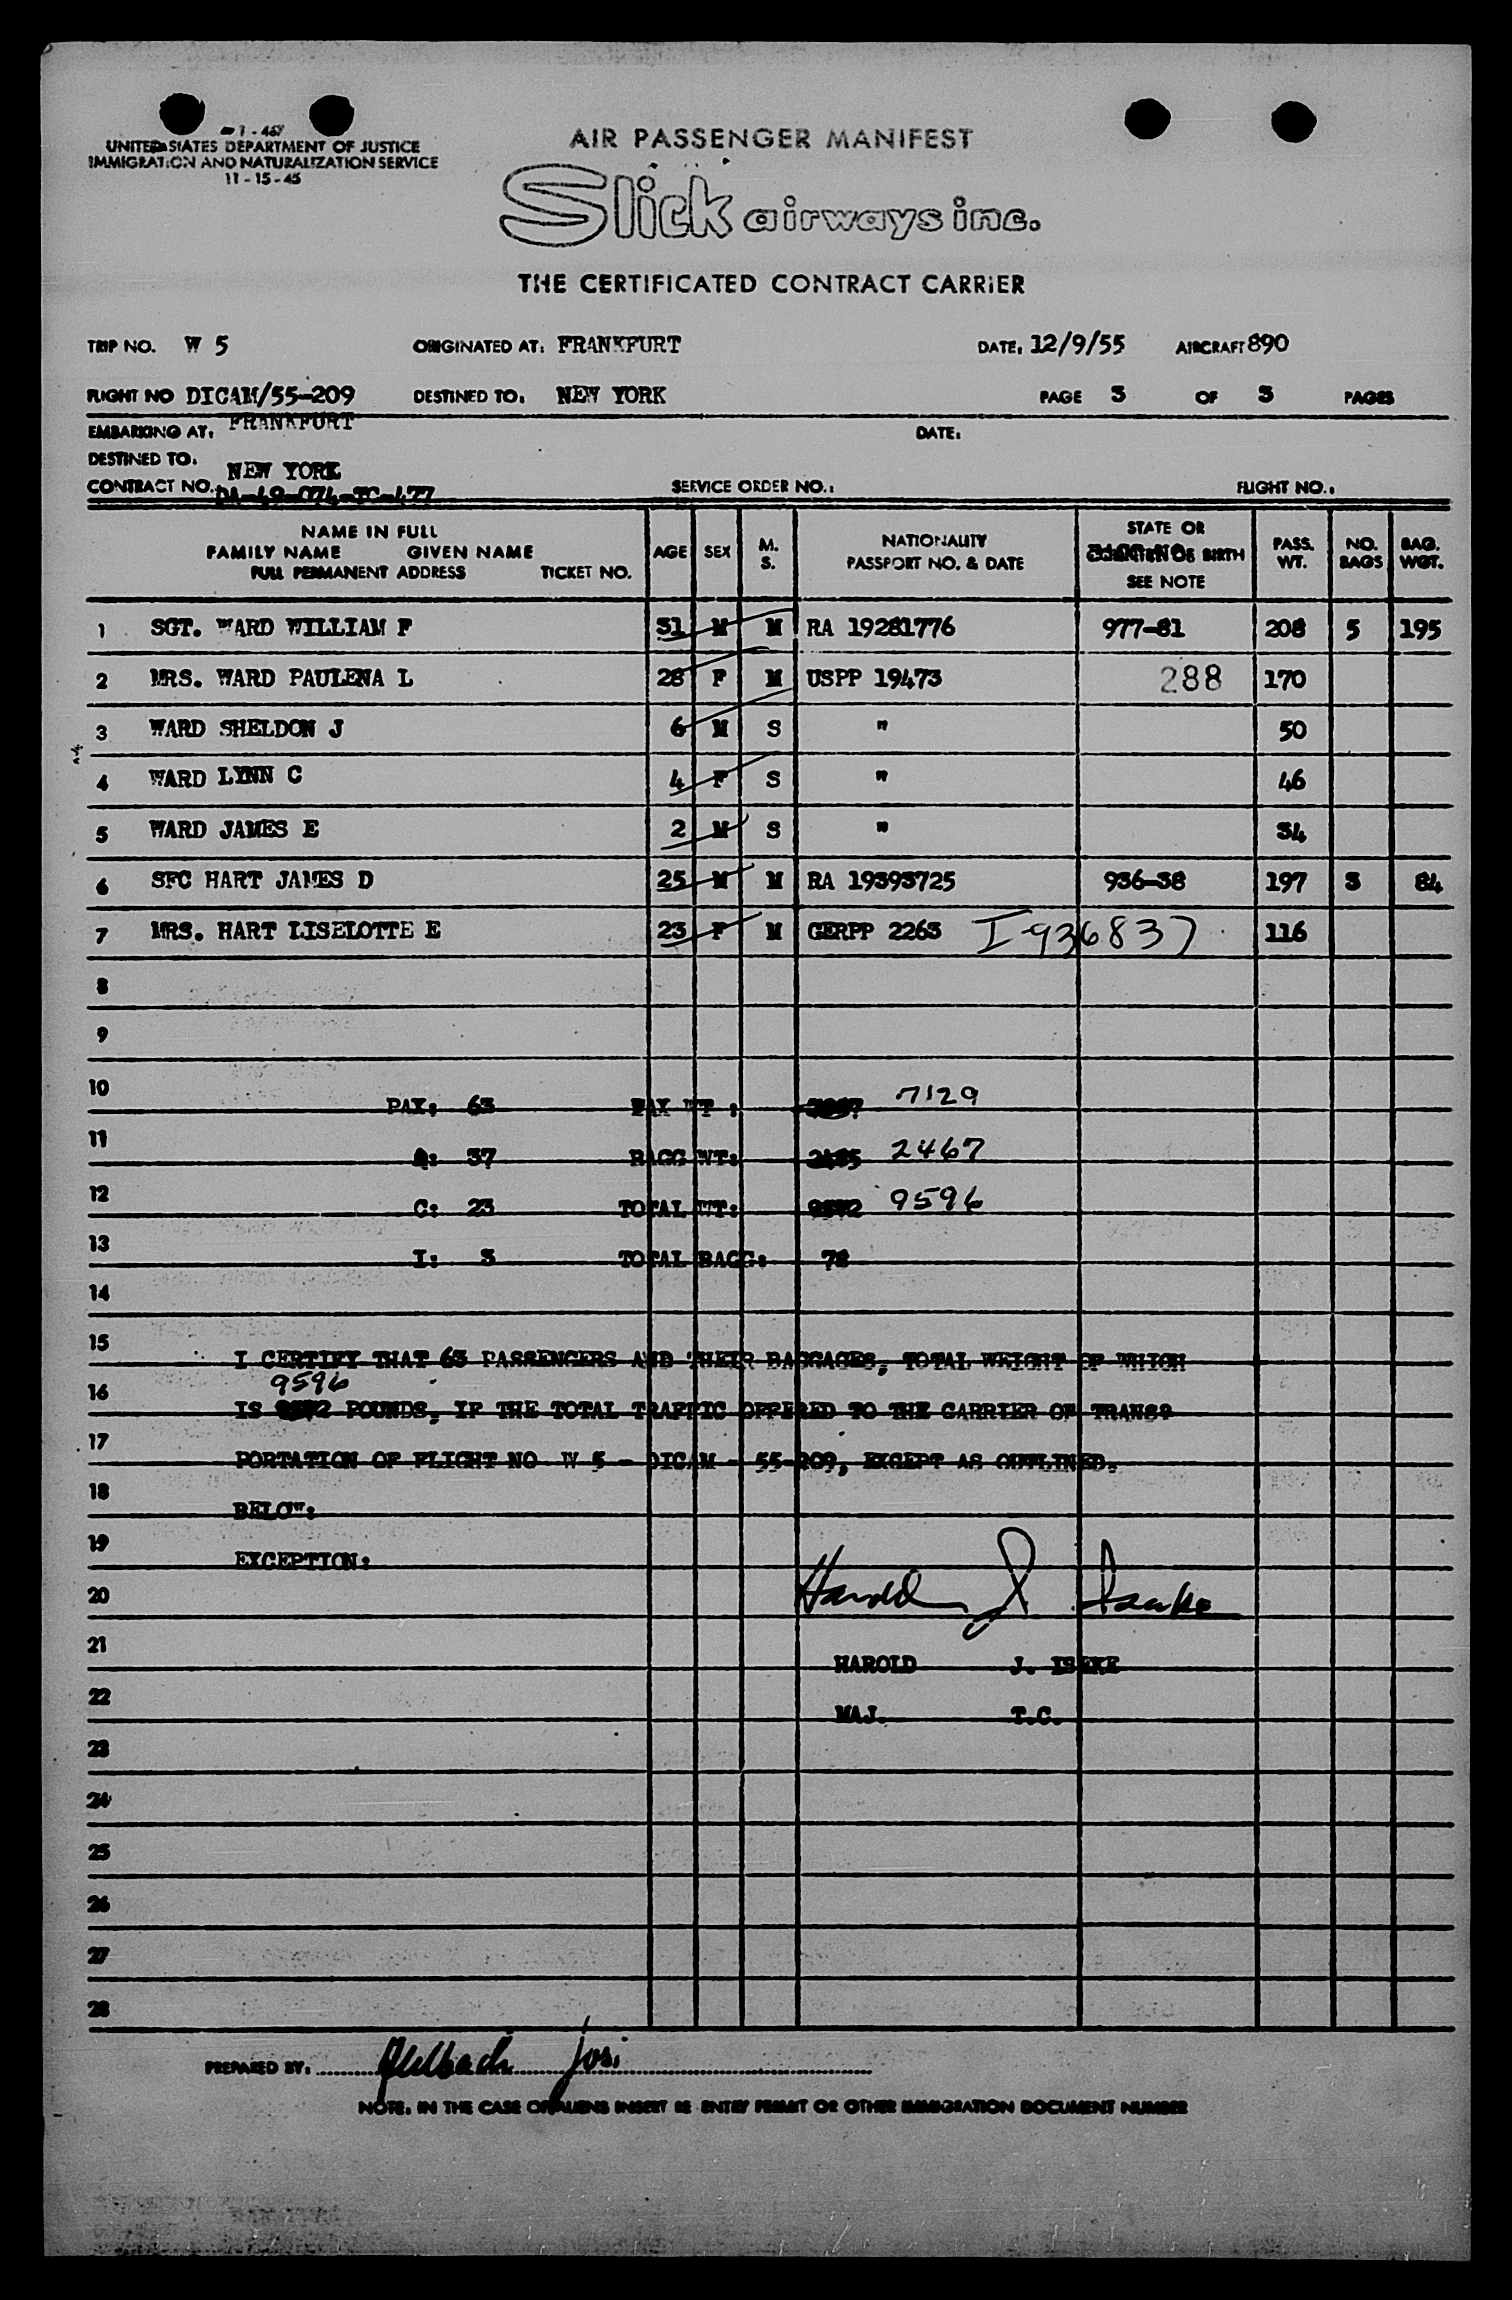 UNITED STATES DEPARTMENT OF JUSTICE
IMMIGRATION AND NATURALIZATION SERVICE
11-15-45
AIR PASSENGER MANIFEST
Slick airways inc.
THE CERTIFICATED CONTRACT CARRIER
TRIP NO. W 5 ORIGINATED AT: FRANKFURT DATE: 12/9/55 AIRCRAFT 890
FLIGHT NO DICAM/55-209 DESTINED TO: NEW YORK PAGE 3 OF 3 PAGES
EMBARKING AT: FRANKFURT DATE:
DESTINED TO: NEW YORK
CONTRACT NO. DA-49-074-TC-477 SERVICE ORDER NO.: FLIGHT NO.:
NAME IN FULL
FAMILY NAME GIVEN NAME
FULL PERMANENT ADDRESS TICKET NO.
AGE SEX M. S. NATIONALITY PASSPORT NO. & DATE STATE OR BIRTH SEE NOTE PASS. WT. NO. BAGS BAG. WGT.
1 SGT. WARD WILLIAM F 31 M M RA 19281776 977-81 208 5 195
2 MRS. WARD PAULENA L 28 F M USPP 19473 288 170
3 WARD SHELDON J 6 M S " 50
4 WARD LYNN C 4 F S " 46
5 WARD JAMES E 2 M S " 34
6 SFC HART JAMES D 25 M M RA 19393725 936-38 197 3 84
7 MRS. HART LISELOTTE E 23 F M GERPP 2263 I-936837 116
8
9
10 PAX: 63 PAX WT : 7129
11 A: 37 BAGG WT: 2467
12 C: 23 TOTAL WT: 9596
13 I: 3 TOTAL BAGG: 78
14
15 I CERTIFY THAT 63 PASSENGERS AND THEIR BAGGAGES, TOTAL WEIGHT OF WHICH
9596
16 IS POUNDS, IF THE TOTAL TRAFFIC OFFERED TO THE CARRIER ON TRANS?
17 PORTATION OF FLIGHT NO W 5 - DICAM - 55-209, EXCEPT AS OUTLINED.
18 BELOW:
19 EXCEPTION:
20 Harold J. Iseke
21 HAROLD J. ISEKE
22 MAJ. T.C.
23
24
25
26
27
28
PREPARED BY:
NOTE. IN THE CASE OF ALIENS INSERT RE ENTRY PERMIT OR OTHER IMMIGRATION DOCUMENT NUMBER